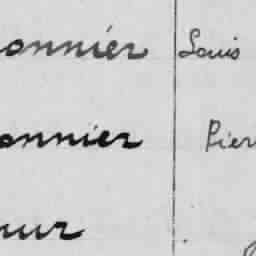 onnier Louis
onnier Pier
eur